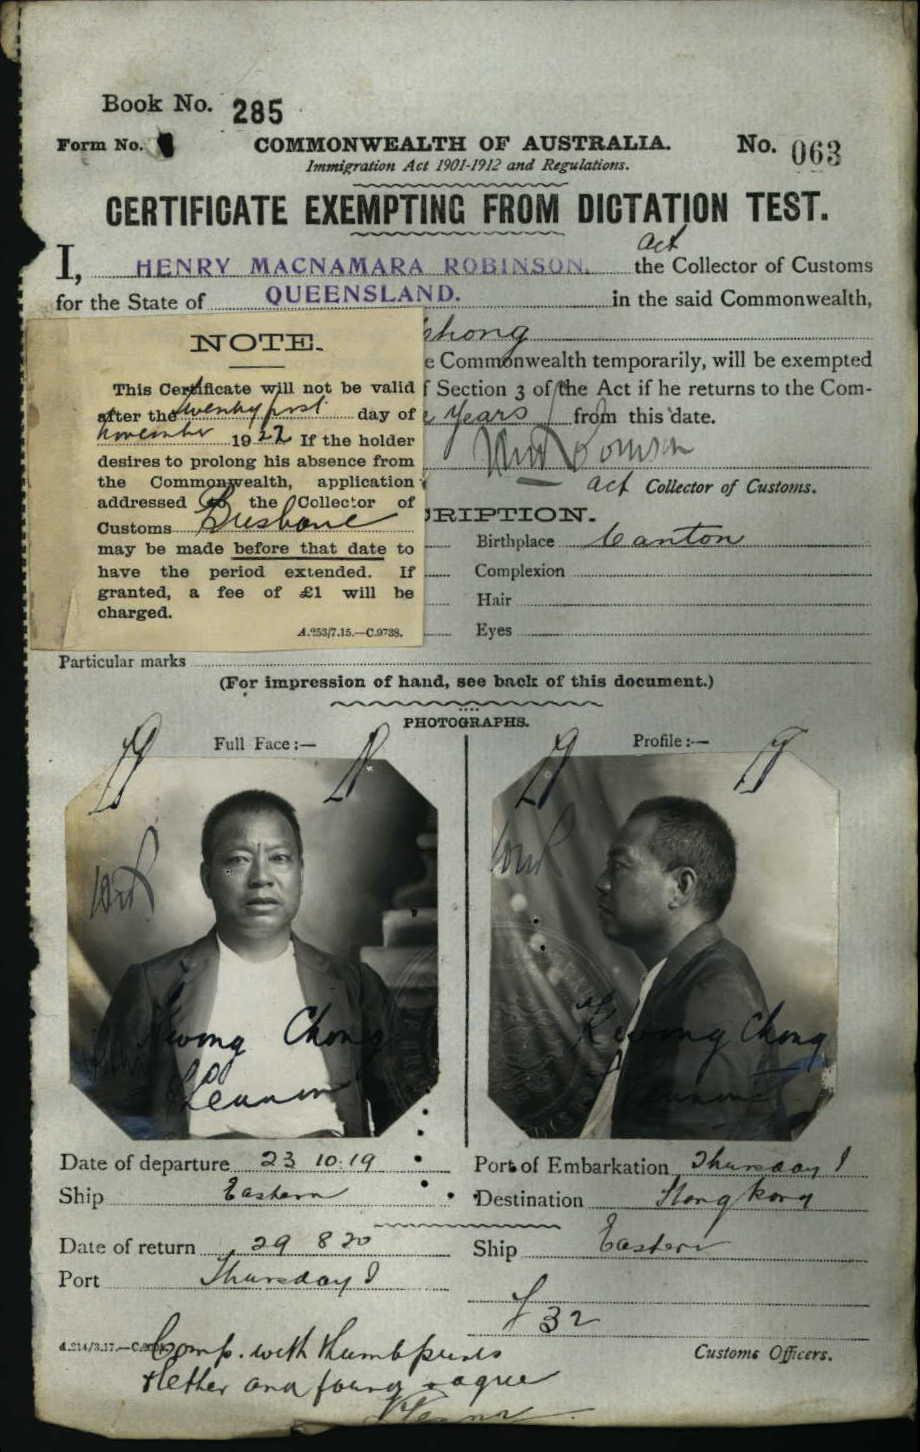 Book No. 285
Form No.
COMMONWEALTH OF AUSTRALIA.
No. 063
Immigration Act 1901-1912 and Regulations.
CERTIFICATE EXEMPTING FROM DICTATION TEST.
act
I, HENRY MACNAMARA ROBINSON. the Collector of Customs
for the State of QUEENSLAND. in the said Commonwealth,
NOTE.
This Certificate will not be valid
after the twenty first day of
November 1922 If the holder
desires to prolong his absence from
the Commonwealth, application
addressed to the Collector of
Customs Brisbane
may be made before that date to
have the period extended. If
granted, a fee of £1 will be
charged.
A.253/7.15.—C.9738.
hong
e Commonwealth temporarily, will be exempted
f Section 3 of the Act if he returns to the Com-
years from this date.
act Collector of Customs.
RIPTION.
Birthplace Canton
Complexion
Hair
Eyes
Particular marks
(For impression of hand, see back of this document.)
PHOTOGRAPHS.
Full Face:—
Profile:—
Kwong Chong
Kwong Chong
Date of departure 23 10.19
Port of Embarkation Thursday I
Ship Eastern
Destination Hong Kong
Date of return 29 8 20
Ship Eastern
Port Thursday I
32
A.214/3.17.—C.
Customs Officers.
Comp. with thumbprints
and found agree